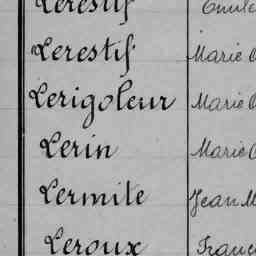 Lerestif Emile
Lerestif Marie
Lerigoleur Marie
Lerin Marie
Lermite Jean M
Leroux Franc